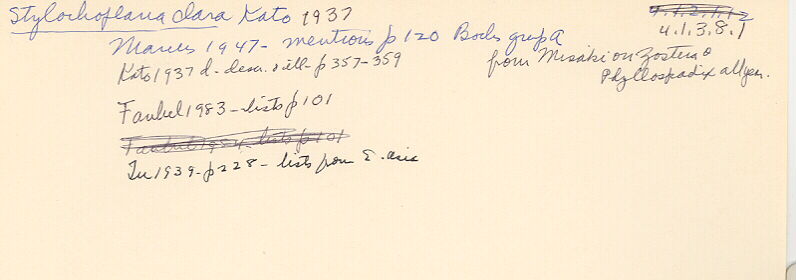 Stylochoplana clara Kato 1937
4.1.2.1.12
4.1.3.8.1
Marcus 1947- mentions p120 Bocks grup A
Kato 1937d - descr. & ill- p 357-359
from Misaki on Zostera &
Phyllospadix all yr.
Faubel 1983 - lists p101
Faubel 1984 - lists p101
Tu 1939 - p228 - lists from E. asia